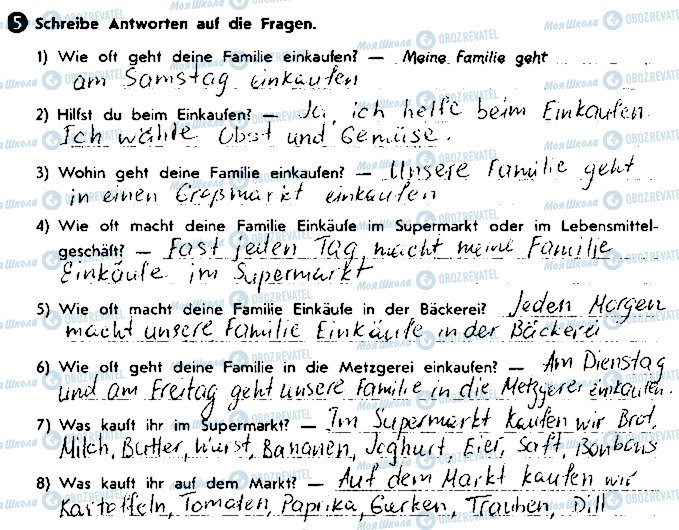 5 Schreibe Antworten auf die Fragen.
1) Wie oft geht deine Familie einkaufen? — Meine Familie geht
am Samstag einkaufen
2) Hilfst du beim Einkaufen? — Ja, ich helfe beim Einkaufen.
Ich wähle Obst und Gemüse.
3) Wohin geht deine Familie einkaufen? — Unsere Familie geht
in einen Großmarkt einkaufen
4) Wie oft macht deine Familie Einkäufe im Supermarkt oder im Lebensmittel-
geschäft? — Fast jeden Tag macht meine Familie
Einkäufe im Supermarkt
5) Wie oft macht deine Familie Einkäufe in der Bäckerei? Jeden Morgen
macht unsere Familie Einkäufe in der Bäckerei
6) Wie oft geht deine Familie in die Metzgerei einkaufen? — Am Dienstag
und am Freitag geht unsere Familie in die Metzgerei einkaufen.
7) Was kauft ihr im Supermarkt? — Im Supermarkt kaufen wir Brot,
Milch, Butter, Wurst, Bananen, Joghurt, Eier, Saft, Bonbons
8) Was kauft ihr auf dem Markt? — Auf dem Markt kaufen wir
Kartoffeln, Tomaten, Paprika, Gurken, Trauben, Dill